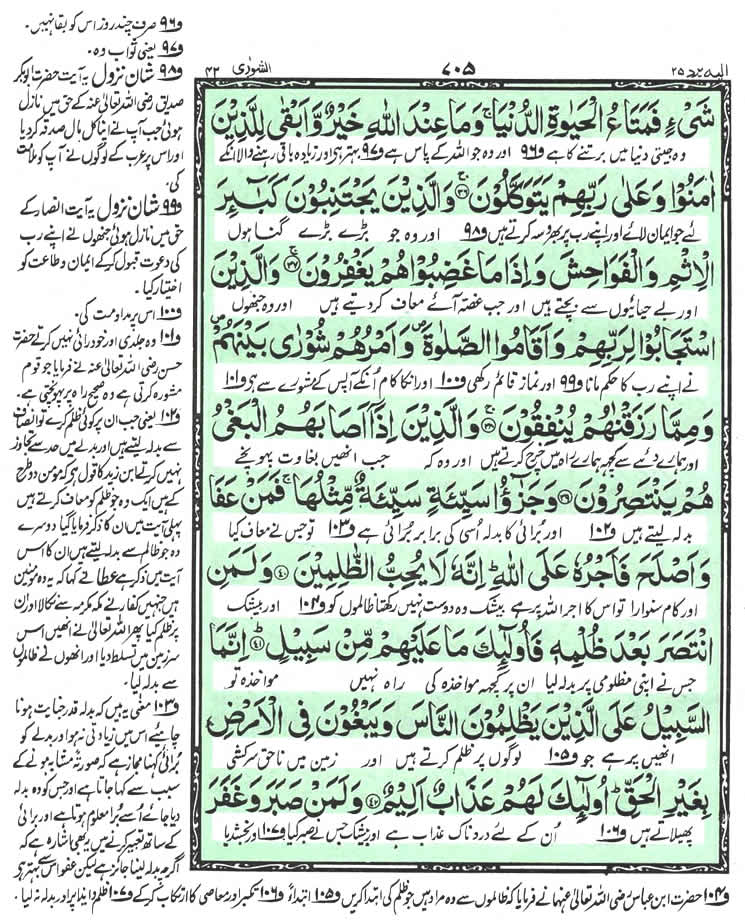 الیہ یرد ۲۵
۷۰۵
الشوری ۴۲
شَیْءٍ فَمَتَاعُ الْحَیٰوةِ الدُّنْیَا ۚ وَمَا عِنْدَ اللّٰهِ خَیْرٌ وَّاَبْقٰی لِلَّذِیْنَ
وہ جیتی دنیا میں برتنے کا ہے و۹۶ اور وہ جو اللہ کے پاس ہے و۹۷ بہتر ہی اور زیادہ باقی رہنے والا انکے
اٰمَنُوْا وَعَلٰی رَبِّهِمْ یَتَوَكَّلُوْنَ ۚ﴿۳۶﴾ وَالَّذِیْنَ یَجْتَنِبُوْنَ كَبٰٓئِرَ
لئے جو ایمان لائے اور اپنے رب پر بھروسہ کرتے ہیں و۹۸ اور وہ جو بڑے بڑے گناہوں
الْاِثْمِ وَالْفَوَاحِشَ وَاِذَا مَا غَضِبُوْا هُمْ یَغْفِرُوْنَ ۚ﴿۳۷﴾ وَالَّذِیْنَ
اور بے حیائیوں سے بچتے ہیں اور جب غصہ آئے معاف کر دیتے ہیں اور وہ جنھوں
اسْتَجَابُوْا لِرَبِّهِمْ وَاَقَامُوا الصَّلٰوةَ ۪ وَاَمْرُهُمْ شُوْرٰی بَیْنَهُمْ ۪
نے اپنے رب کا حکم مانا و۹۹ اور نماز قائم رکھی و۱۰۰ اور انکا کام اُنکے آپس کے مشورے سے ہی و۱۰۱
وَمِمَّا رَزَقْنٰهُمْ یُنْفِقُوْنَ ۚ﴿۳۸﴾ وَالَّذِیْنَ اِذَآ اَصَابَهُمُ الْبَغْیُ
اور ہمارے دئیے سے کچھ ہماری راہ میں خرچ کرتے ہیں اور وہ کہ جب انھیں بغاوت پہونچے
هُمْ یَنْتَصِرُوْنَ ﴿۳۹﴾ وَجَزٰٓؤُا سَیِّئَةٍ سَیِّئَةٌ مِّثْلُهَا ۚ فَمَنْ عَفَا
بدلہ لیتے ہیں و۱۰۲ اور بُرائی کا بدلہ اُسی کی برابر بُرائی ہے و۱۰۳ تو جس نے معاف کیا
وَاَصْلَحَ فَاَجْرُهٗ عَلَی اللّٰهِ ؕ اِنَّهٗ لَا یُحِبُّ الظّٰلِمِیْنَ ﴿۴۰﴾ وَلَمَنِ
اور کام سنوارا تو اس کا اجر اللہ پر ہے بیشک وہ دوست نہیں رکھتا ظالموں کو و۱۰۴ اور بیشک
انْتَصَرَ بَعْدَ ظُلْمِهٖ فَاُولٰٓئِكَ مَا عَلَیْهِمْ مِّنْ سَبِیْلٍ ؕ﴿۴۱﴾ اِنَّمَا
جس نے اپنی مظلومی پر بدلہ لیا ان پر کچھ مواخذہ کی راہ نہیں مواخذہ تو
السَّبِیْلُ عَلَی الَّذِیْنَ یَظْلِمُوْنَ النَّاسَ وَیَبْغُوْنَ فِی الْاَرْضِ
انھیں پر ہے جو و۱۰۵ لوگوں پر ظلم کرتے ہیں اور زمین میں ناحق سرکشی
بِغَیْرِ الْحَقِّ ؕ اُولٰٓئِكَ لَهُمْ عَذَابٌ اَلِیْمٌ ﴿۴۲﴾ وَلَمَنْ صَبَرَ وَغَفَرَ
پھیلاتے ہیں و۱۰۶ اُن کے لئے دردناک عذاب ہے اور بیشک جس نے صبر کیا و۱۰۷ اور بخشدیا
و۹۶ صرف چند روز اس کو بقا نہیں۔
و۹۷ یعنی ثواب وہ۔
و۹۸ شان نزول یہ آیت حضرت ابوبکر
صدیق رضی اللہ تعالیٰ عنہ کے حق میں نازل
ہوئی جب آپ نے اپنا کل مال صدقہ کر دیا
اور اس پر عرب کے لوگوں نے آپ کو ملامت
کی۔
و۹۹ شان نزول یہ آیت انصار کے
حق میں نازل ہوئی جنھوں نے اپنے رب
کی دعوت قبول کر کے ایمان و طاعت کو
اختیار کیا۔
و۱۰۰ اس پر مداومت کی۔
و۱۰۱ وہ جلدی اور خود رائی نہیں کرتے حضرت
حسن رضی اللہ تعالیٰ عنہ نے فرمایا جو قوم
مشورہ کرتی ہے وہ صحیح راہ پر پہونچتی ہے۔
و۱۰۲ یعنی جب ان پر کوئی ظلم کرے تو انصاف
سے بدلہ لیتے ہیں اور بدلے میں حد سے تجاوز
نہیں کرتے ابن زید کا قول ہے کہ مومن دو طرح
کے ہیں ایک وہ جو ظلم کو معاف کرتے ہیں
پہلی آیت میں ان کا ذکر فرمایا گیا دوسرے
وہ جو ظالم سے بدلہ لیتے ہیں ان کا اس
آیت میں ذکر ہے عطا نے کہا کہ یہ وہ مومنین
ہیں جنہیں کفار نے مکہ مکرمہ سے نکالا اور ان
پر ظلم کیا پھر اللہ تعالیٰ نے انھیں اس
سرزمین میں تسلط دیا اور انھوں نے ظالموں
سے بدلہ لیا۔
و۱۰۳ معنی یہ ہیں کہ بدلہ قدر جنایت ہونا
چاہئے اس میں زیادتی نہ ہو اور بدلے کو
بُرائی کہنا مجاز ہے کہ صورۃً مشابہ ہونے کے
سبب سے کہا جاتا ہے اور جس کو وہ بدلہ
دیا جائے اُسے بُرا معلوم ہوتا ہے اور برائی
کے ساتھ تعبیر کرنے میں یہ بھی اشارہ ہے کہ
اگرچہ بدلہ لینا جائز ہے لیکن عفو اس سے بہتر ہے
و۱۰۴ حضرت ابن عباس رضی اللہ تعالیٰ عنہما نے فرمایا کہ ظالموں سے وہ مراد ہیں جو ظلم کی ابتدا کریں و۱۰۵ ابتداءً و۱۰۶ تکبر اور معاصی کا ارتکاب کر کے و۱۰۷ ظلم و ایذا پر اور بدلہ نہ لیا۔